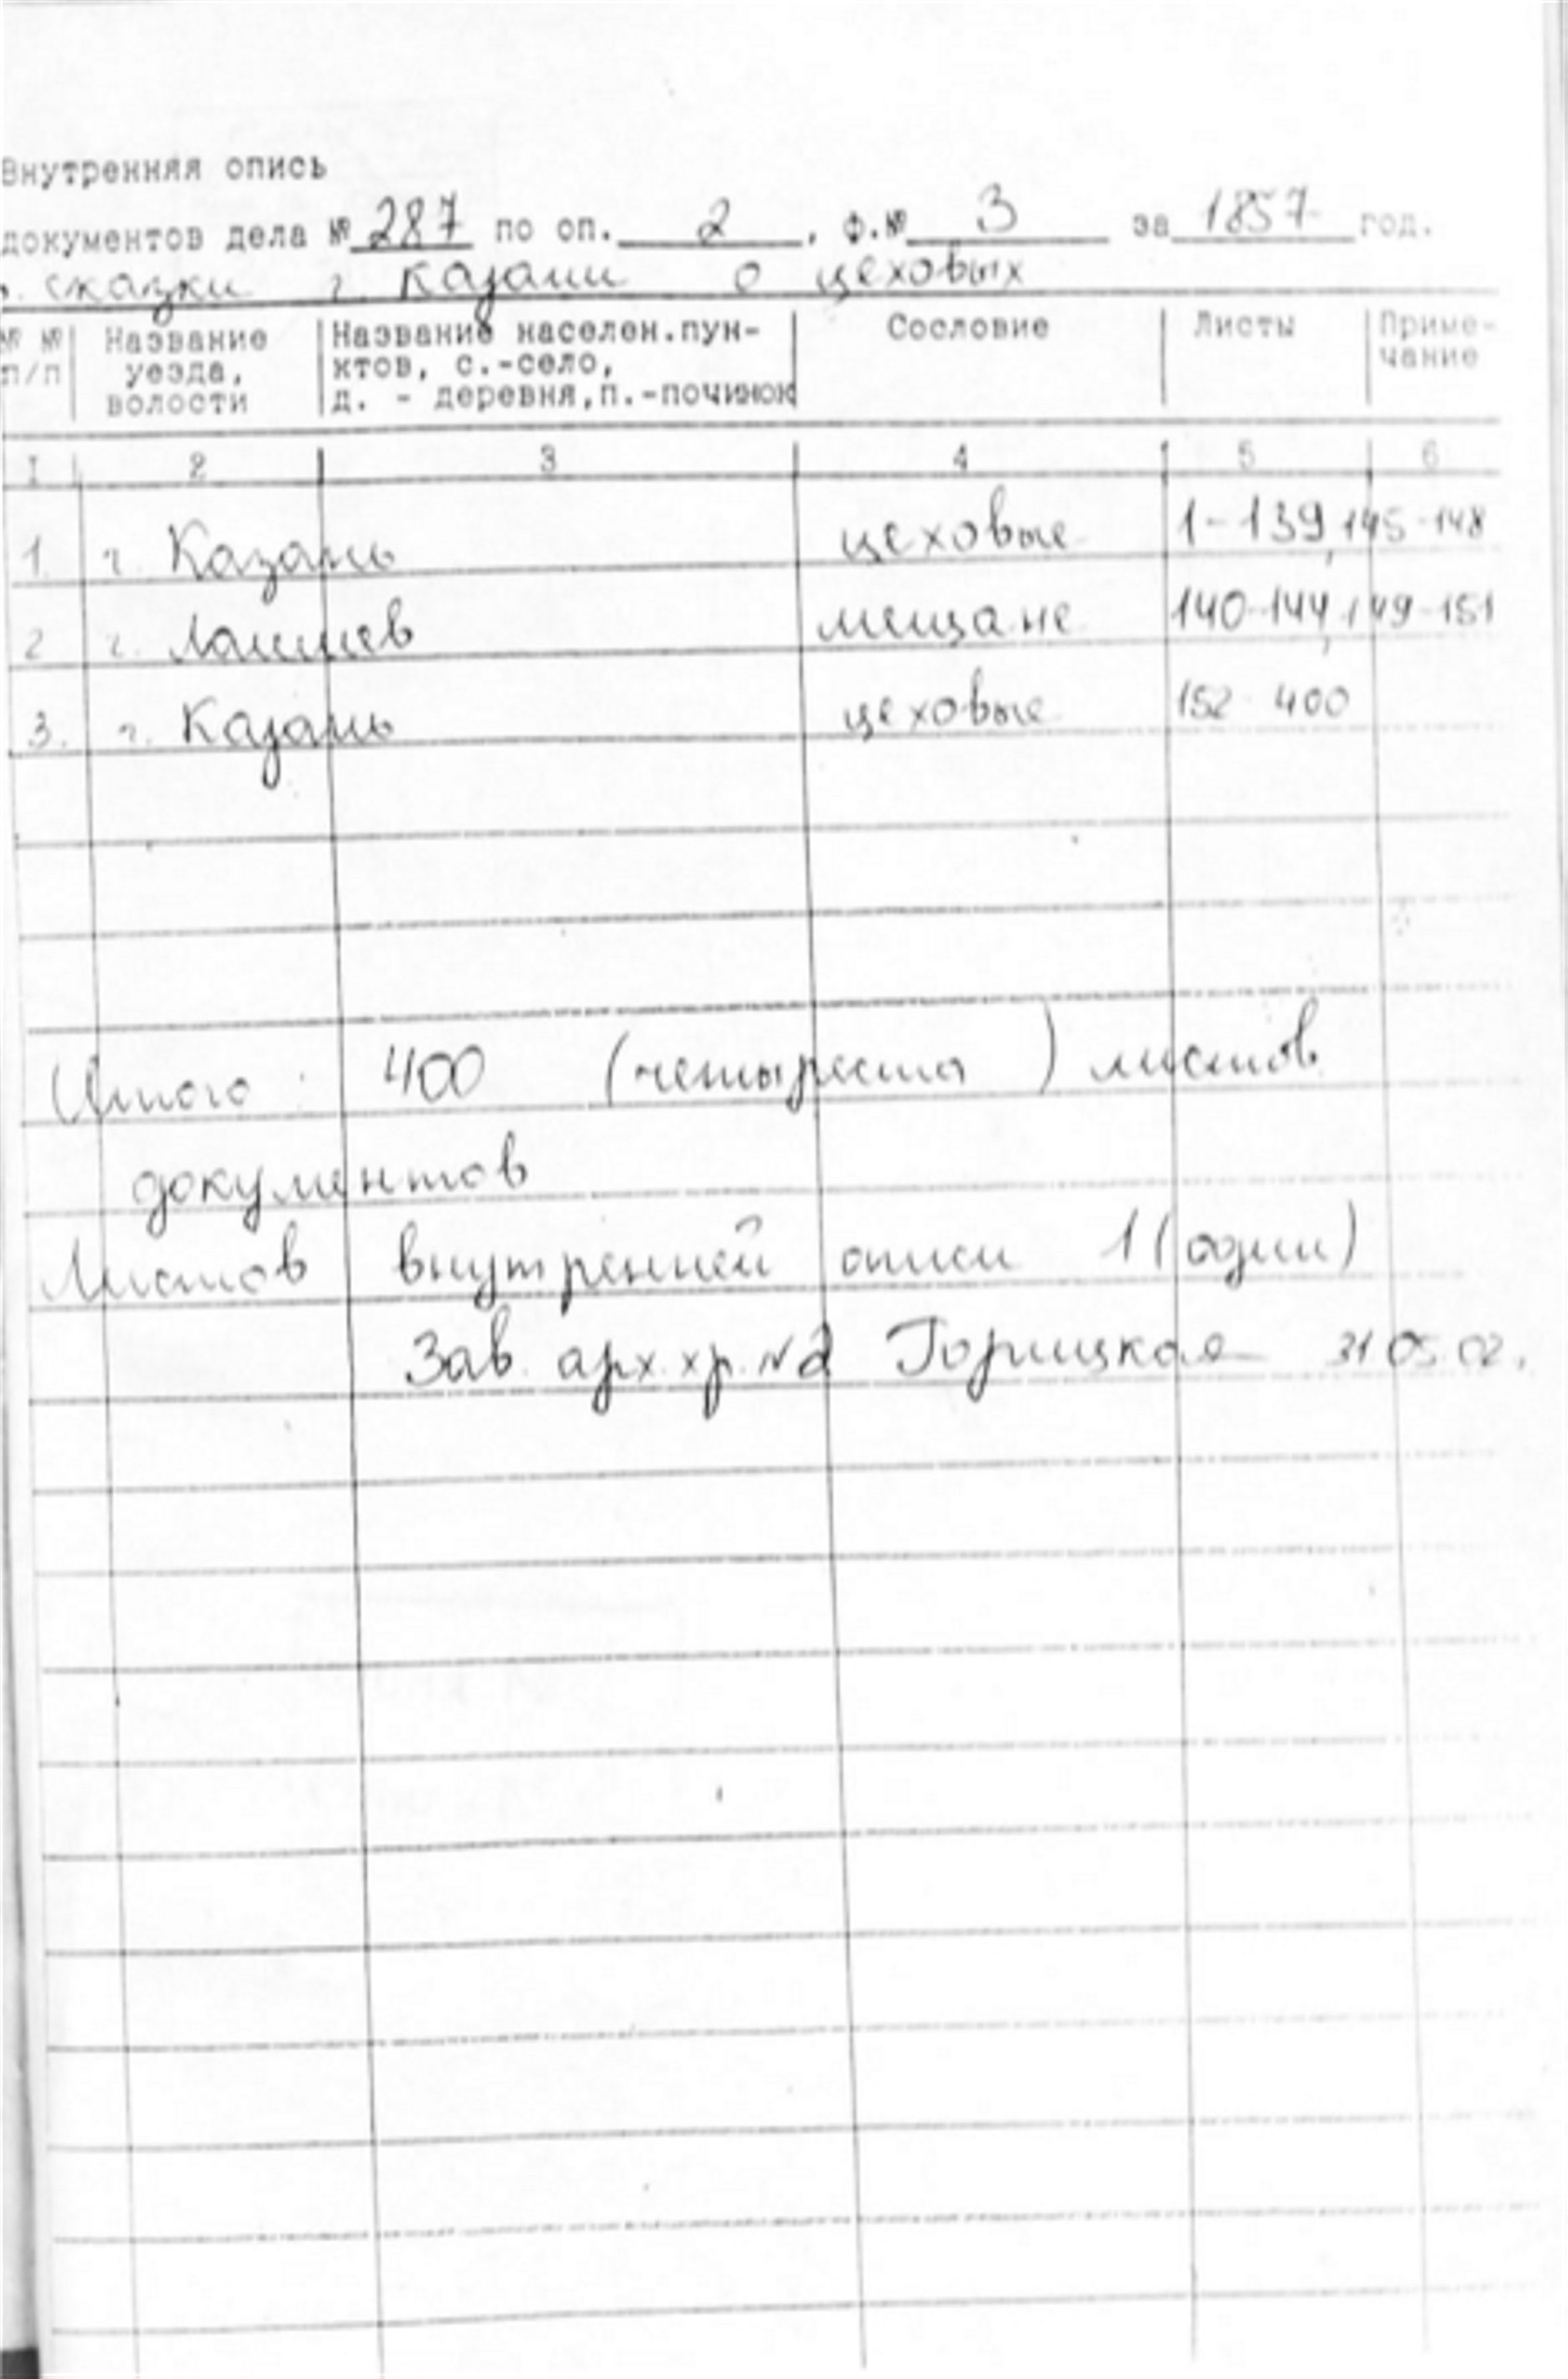 Внутренняя опись
документов дела № 287 по оп. 2, ф.№ 3 за 1857 год.
сказки г. Казани о цеховых
№ № п/п | Название уезда, волости | Название населен.пунктов, с.-село, д. - деревня,п.-починок | Сословие | Листы | Примечание
I 2 3 4 5 6
1. г. Казань цеховые 1-139, 145-148
2 г. Лаишев мещане 140-144, 149-151
3. г. Казань цеховые 152-400
Итого: 400 (четыреста) листов
документов
Листов внутренней описи 1 (один)
Зав. арх.хр. №2 Горицкая 31 05 02.